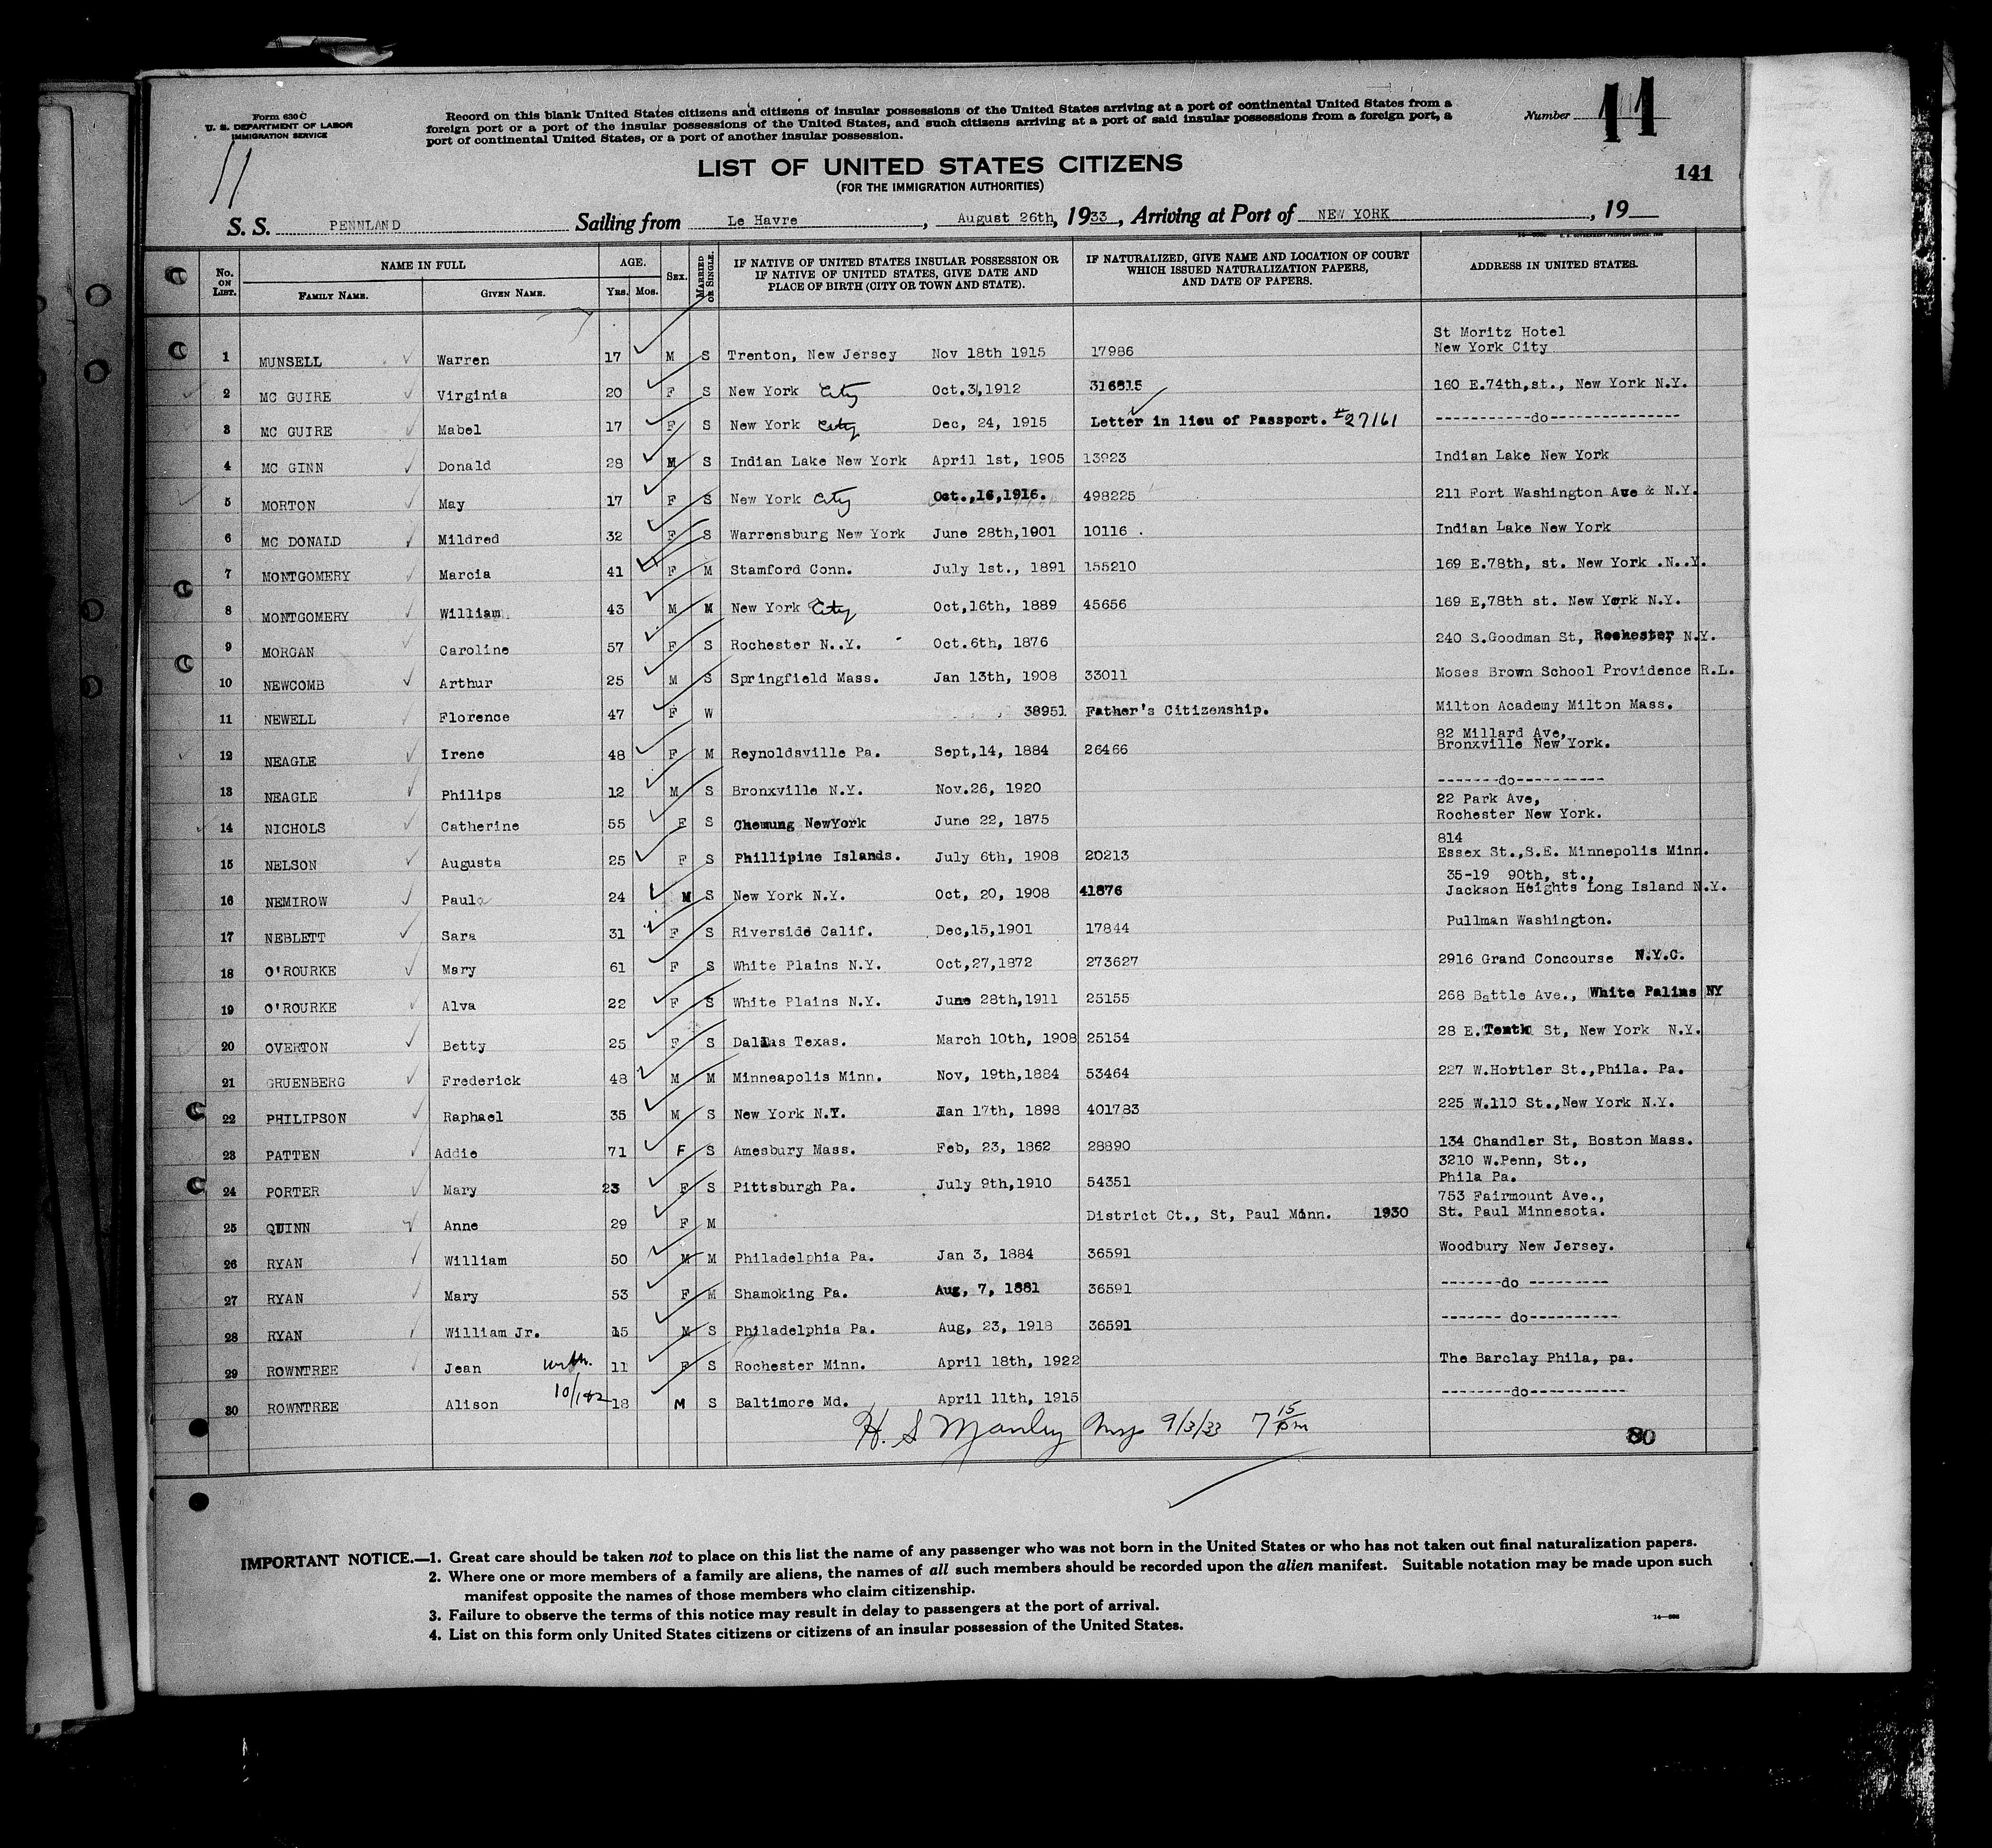 Form 630 C
U. S. DEPARTMENT OF LABOR
IMMIGRATION SERVICE
11
Record on this blank United States citizens and citizens of insular possessions of the United States arriving at a port of continental United States from a
foreign port or a port of the insular possessions of the United States, and such citizens arriving at a port of said insular possessions from a foreign port, a
port of continental United States, or a port of another insular possession.
Number 11
LIST OF UNITED STATES CITIZENS
(FOR THE IMMIGRATION AUTHORITIES)
141
S. S. PENNLAND Sailing from Le Havre, August 26th, 1933, Arriving at Port of NEW YORK, 19
No. ON LIST. NAME IN FULL FAMILY NAME. GIVEN NAME. AGE. YRS. MOS. SEX. MARRIED OR SINGLE. IF NATIVE OF UNITED STATES INSULAR POSSESSION OR IF NATIVE OF UNITED STATES, GIVE DATE AND PLACE OF BIRTH (CITY OR TOWN AND STATE). IF NATURALIZED, GIVE NAME AND LOCATION OF COURT WHICH ISSUED NATURALIZATION PAPERS, AND DATE OF PAPERS. ADDRESS IN UNITED STATES.
1 MUNSELL Warren 17 M S Trenton, New Jersey Nov 18th 1915 17986 St Moritz Hotel New York City
2 MC GUIRE Virginia 20 F S New York City Oct.3,1912 316815 160 E.74th,st., New York N.Y.
3 MC GUIRE Mabel 17 F S New York City Dec, 24, 1915 Letter in lieu of Passport. #27161 -----------do---------------
4 MC GINN Donald 28 M S Indian Lake New York April 1st, 1905 13923 Indian Lake New York
5 MORTON May 17 F S New York City Oct.,16,1916. 498225 211 Fort Washington Ave & N.Y.
6 MC DONALD Mildred 32 F S Warrensburg New York June 28th,1901 10116 . Indian Lake New York
7 MONTGOMERY Marcia 41 F M Stamford Conn. July 1st., 1891 155210 169 E.78th, st. New York .N..Y.
8 MONTGOMERY William 43 M M New York City Oct,16th, 1889 45656 169 E,78th st. New York N.Y.
9 MORGAN Caroline 57 F S Rochester N..Y. Oct.6th, 1876 240 S.Goodman St, Rochester N.Y.
10 NEWCOMB Arthur 25 M S Springfield Mass. Jan 13th, 1908 33011 Moses Brown School Providence R.L.
11 NEWELL Florence 47 F W 38951 Father's Citizenship. Milton Academy Milton Mass.
12 NEAGLE Irene 48 F M Reynoldsville Pa. Sept,14, 1884 26466 82 Millard Ave, Bronxville New York.
13 NEAGLE Philips 12 M S Bronxville N.Y. Nov.26, 1920 -------do----------
14 NICHOLS Catherine 55 F S Chemung NewYork June 22, 1875 22 Park Ave, Rochester New York.
15 NELSON Augusta 25 F S Phillipine Islands. July 6th, 1908 20213 814 Essex St.,S.E. Minnepolis Minn.
16 NEMIROW Paula 24 M S New York N.Y. Oct, 20, 1908 41876 35-19 90th, st., Jackson Heights Long Island N.Y.
17 NEBLETT Sara 31 F S Riverside Calif. Dec,15,1901 17844 Pullman Washington.
18 O'ROURKE Mary 61 F S White Plains N.Y. Oct,27,1872 273627 2916 Grand Concourse N.Y.C.
19 O'ROURKE Alva 22 F S White Plains N.Y. June 28th,1911 25155 268 Battle Ave., White Palins NY
20 OVERTON Betty 25 F S Dallas Texas. March 10th, 1908 25154 28 E.Tenth St, New York N.Y.
21 GRUENBERG Frederick 48 M M Minneapolis Minn. Nov, 19th,1884 53464 227 W.Hortler St.,Phila. Pa.
22 PHILIPSON Raphael 35 M S New York N.Y. Jan 17th, 1898 401783 225 W.110 St.,New York N.Y.
23 PATTEN Addie 71 F S Amesbury Mass. Feb, 23, 1862 28890 134 Chandler St, Boston Mass.
24 PORTER Mary 23 F S Pittsburgh Pa. July 9th,1910 54351 3210 W.Penn, St., Phila Pa.
25 QUINN Anne 29 F M District Ct., St, Paul Minn. 1930 753 Fairmount Ave., St. Paul Minnesota.
26 RYAN William 50 M M Philadelphia Pa. Jan 3, 1884 36591 Woodbury New Jersey.
27 RYAN Mary 53 F M Shamoking Pa. Aug, 7, 1881 36591 -------do ---------
28 RYAN William Jr. 15 M S Philadelphia Pa. Aug, 23, 1918 36591 ------- do----------
29 ROWNTREE Jean with 11 F S Rochester Minn. April 18th, 1922 The Barclay Phila, pa.
30 ROWNTREE Alison 18 M S Baltimore Md. April 11th, 1915 --------do-----------
H. S Manley Insp 9/3/33 7 15 pm
30
IMPORTANT NOTICE.—1. Great care should be taken not to place on this list the name of any passenger who was not born in the United States or who has not taken out final naturalization papers.
2. Where one or more members of a family are aliens, the names of all such members should be recorded upon the alien manifest. Suitable notation may be made upon such
manifest opposite the names of those members who claim citizenship.
3. Failure to observe the terms of this notice may result in delay to passengers at the port of arrival.
4. List on this form only United States citizens or citizens of an insular possession of the United States.